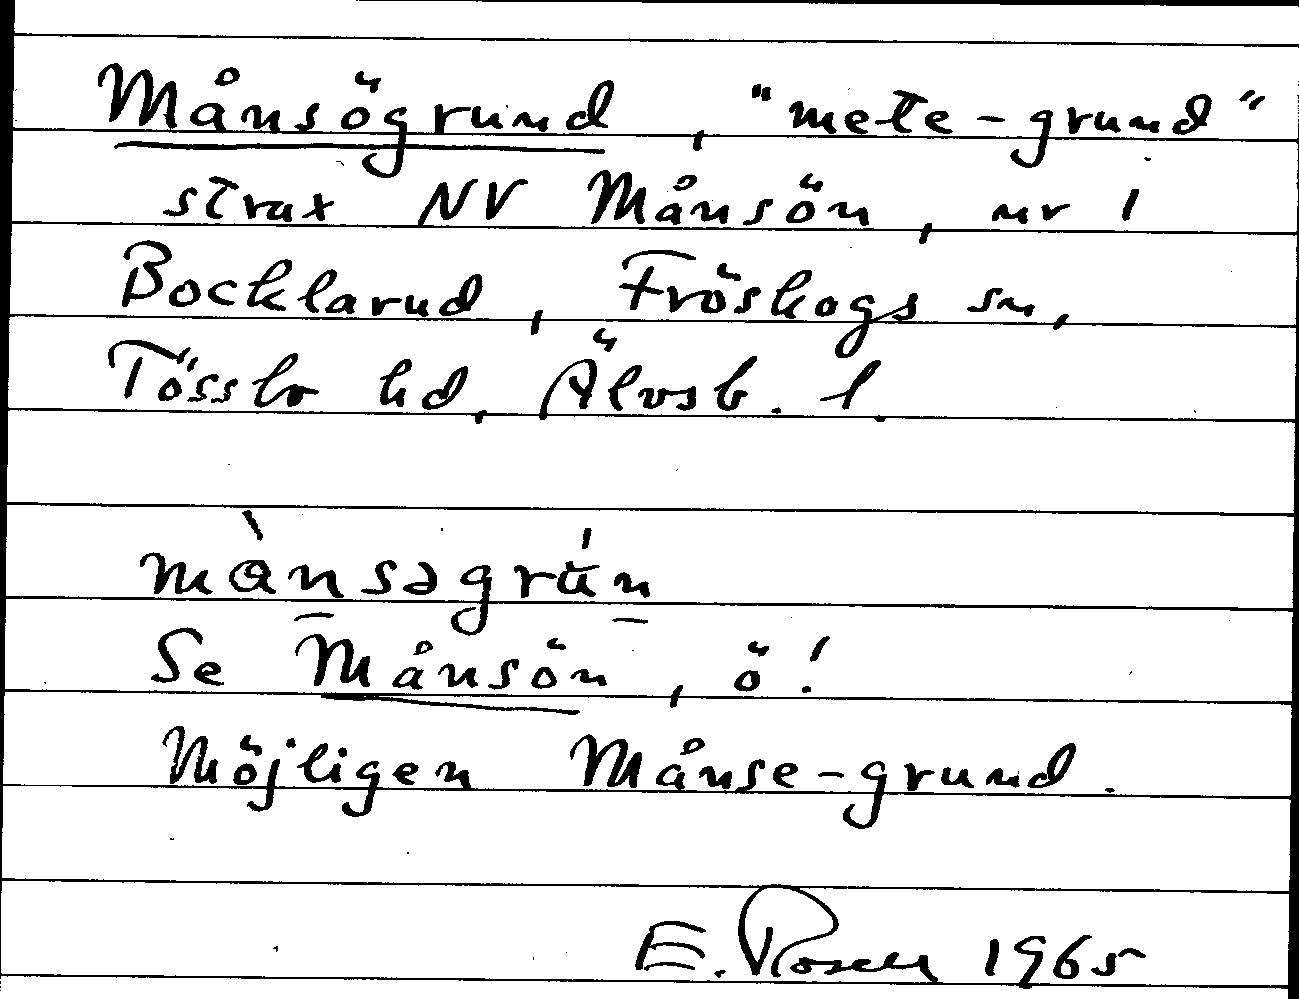 Månsögrund, "mete-grund"
strax NV Månsön, nr 1
Bocklarud, Fröskogs sn,
Tössbo hd, Älvsb. l.
mànsəgrún
Se Månsön, ö!
Möjligen Månse-grund.
E. Rosell 1965